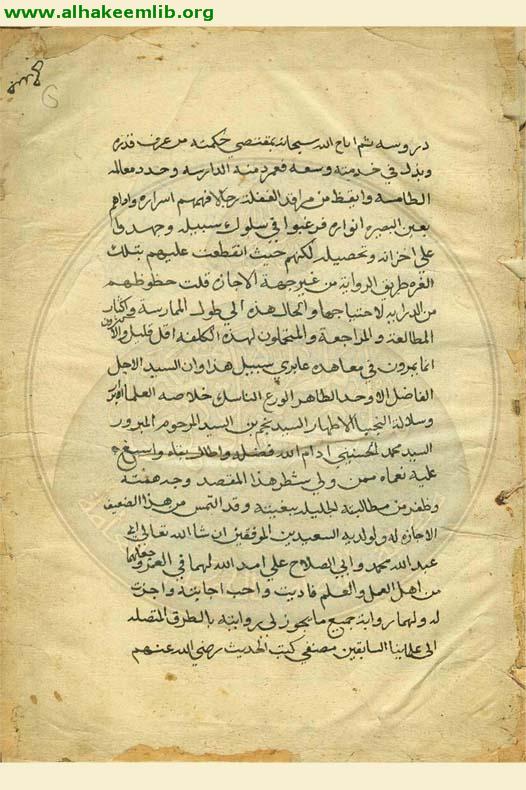 www.alhakeemlib.org
دروسه ثم اتاح الله سبحانه بمقتضي حكمته من عرف قدره
وبذل في خدمته وسعه فعمر دمنه الدارسه وجدد معالمه
الطامسة وايقظ من مراقد الغفلة رجالا فهمهم اسراره واراهم
بعين البصيره انواره فرغبوا في سلوك سبيله وجهدوا
علي احرازه وتحصيله لكنهم حيث انقطعت عليهم بتلك
الفتره طريق الرواية من غير جهة الاجازه قلت حظوظهم
من الدرايه لاحتياجها والحال هذه الي طول الممارسة واكثار
المطالعة والمراجعة والمتحملون لهذه الكلفه اقل قليل والاكثرون
انما يمرون في معاهده عابري سبيل هذا وان السيد الاجل
الفاضل الاوحد الطاهر الورع الناسك خلاصه العلما الابرار
وسلالة النجبا الاطهار السيد نجم بن السيد المرحوم المبرور
السيد محمد الحسيني ادام الله فضله واطال بقاه واسبغ
عليه نعماه ممن ولي شطر هذا المقصد وجه همته
وظفر من مطالبته الجليله ببغيته وقد التمس من هذا الضعيف
الاجازه له ولولديه السعيدين الموفقين ان شا الله تعالى ابي
عبد الله محمد وابي الصلاح علي امد الله لهما في العمر وجعلهما
من اهل العمل والعلم فاديت واجب اجابته واجزت
له ولهما روايه جميع ما يجوز لي روايته بالطرق المتصله
الى علمائنا السابقين مصنفي كتب الحديث رضي الله عنهم